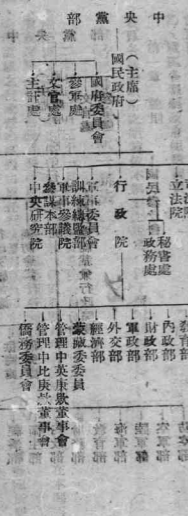 中央黨部
國民政府
（主席）
國府委員會
參軍處
文官處
主計處
立法院
行政院
秘書處
政務處
軍事委員會
訓練總監部
軍事參議院
參謀本部
中央研究院
教育部
內政部
財政部
軍政部
外交部
經濟部
蒙藏委員會
管理中英庚款董事會
管理中比庚款董事會
僑務委員會